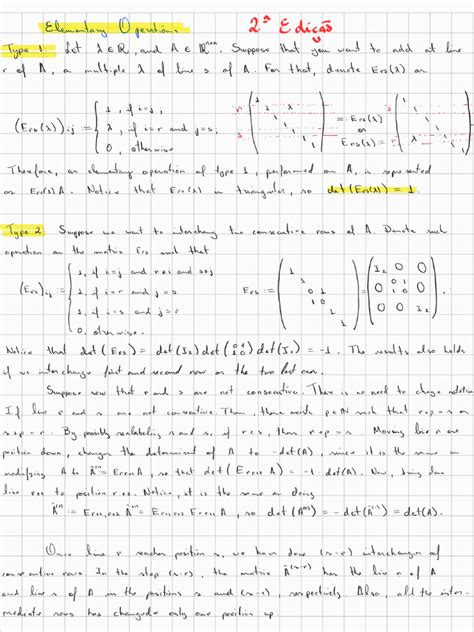 Elementary Operations 2ª Edição
Type 1 Let λ∈ℝ, and A ∈ ℝⁿˣⁿ. Suppose that you want to add at line
r of A, a multiple λ of line s of A. For that, denote Ers(λ) as
(Ers(λ))ij := { 1, if i=j; λ, if i=r and j=s; 0, otherwise = Ers(λ) or Ers(λ) =
Therefore, an elementary operation of type 1, performed on A, is represented
as Ers(λ)A. Notice that Ers(λ) is triangular, so det(Ers(λ)) = 1.
Type 2 Suppose we want to interchange two consecutive rows of A. Denote such
operation as the matrix Ers such that
(Ers)ij := { 1, if i=j and r≠i and s≠j; 1, if i=r and j=s; 1, if i=s and j=r; 0, otherwise. Ers :=
Notice that det(Ers) = det(I2) det(0 1 1 0) det(I2) = -1. The results also holds
if we interchange first and second row or the two last ones.
Suppose now that r and s are not consecutive. There is no need to change notation
If line r and s are not consecutive. Then, there exists p∈ℕ such that r+p=s or
s+p=r. By possibly relabeling r and s, if r<s, then r+p=s. Moving line r one
position down, changes the determinant of A to -det(A), since it is the same as
modifying A to = A, so that det( A) = -1 det(A). Now, bring down
line r+1 to position r+2. Notice, it is the same as doing
= = A, so det( ) = -det( ) = det(A).
Once line r reaches position s, we have done (s-r) interchanges of
consecutive rows. In the step (s-r), the matrix has the line r of A
and line s of A in the positions s and (s-1), respectively. Also, all the inter-
mediate rows has changed only one position up.